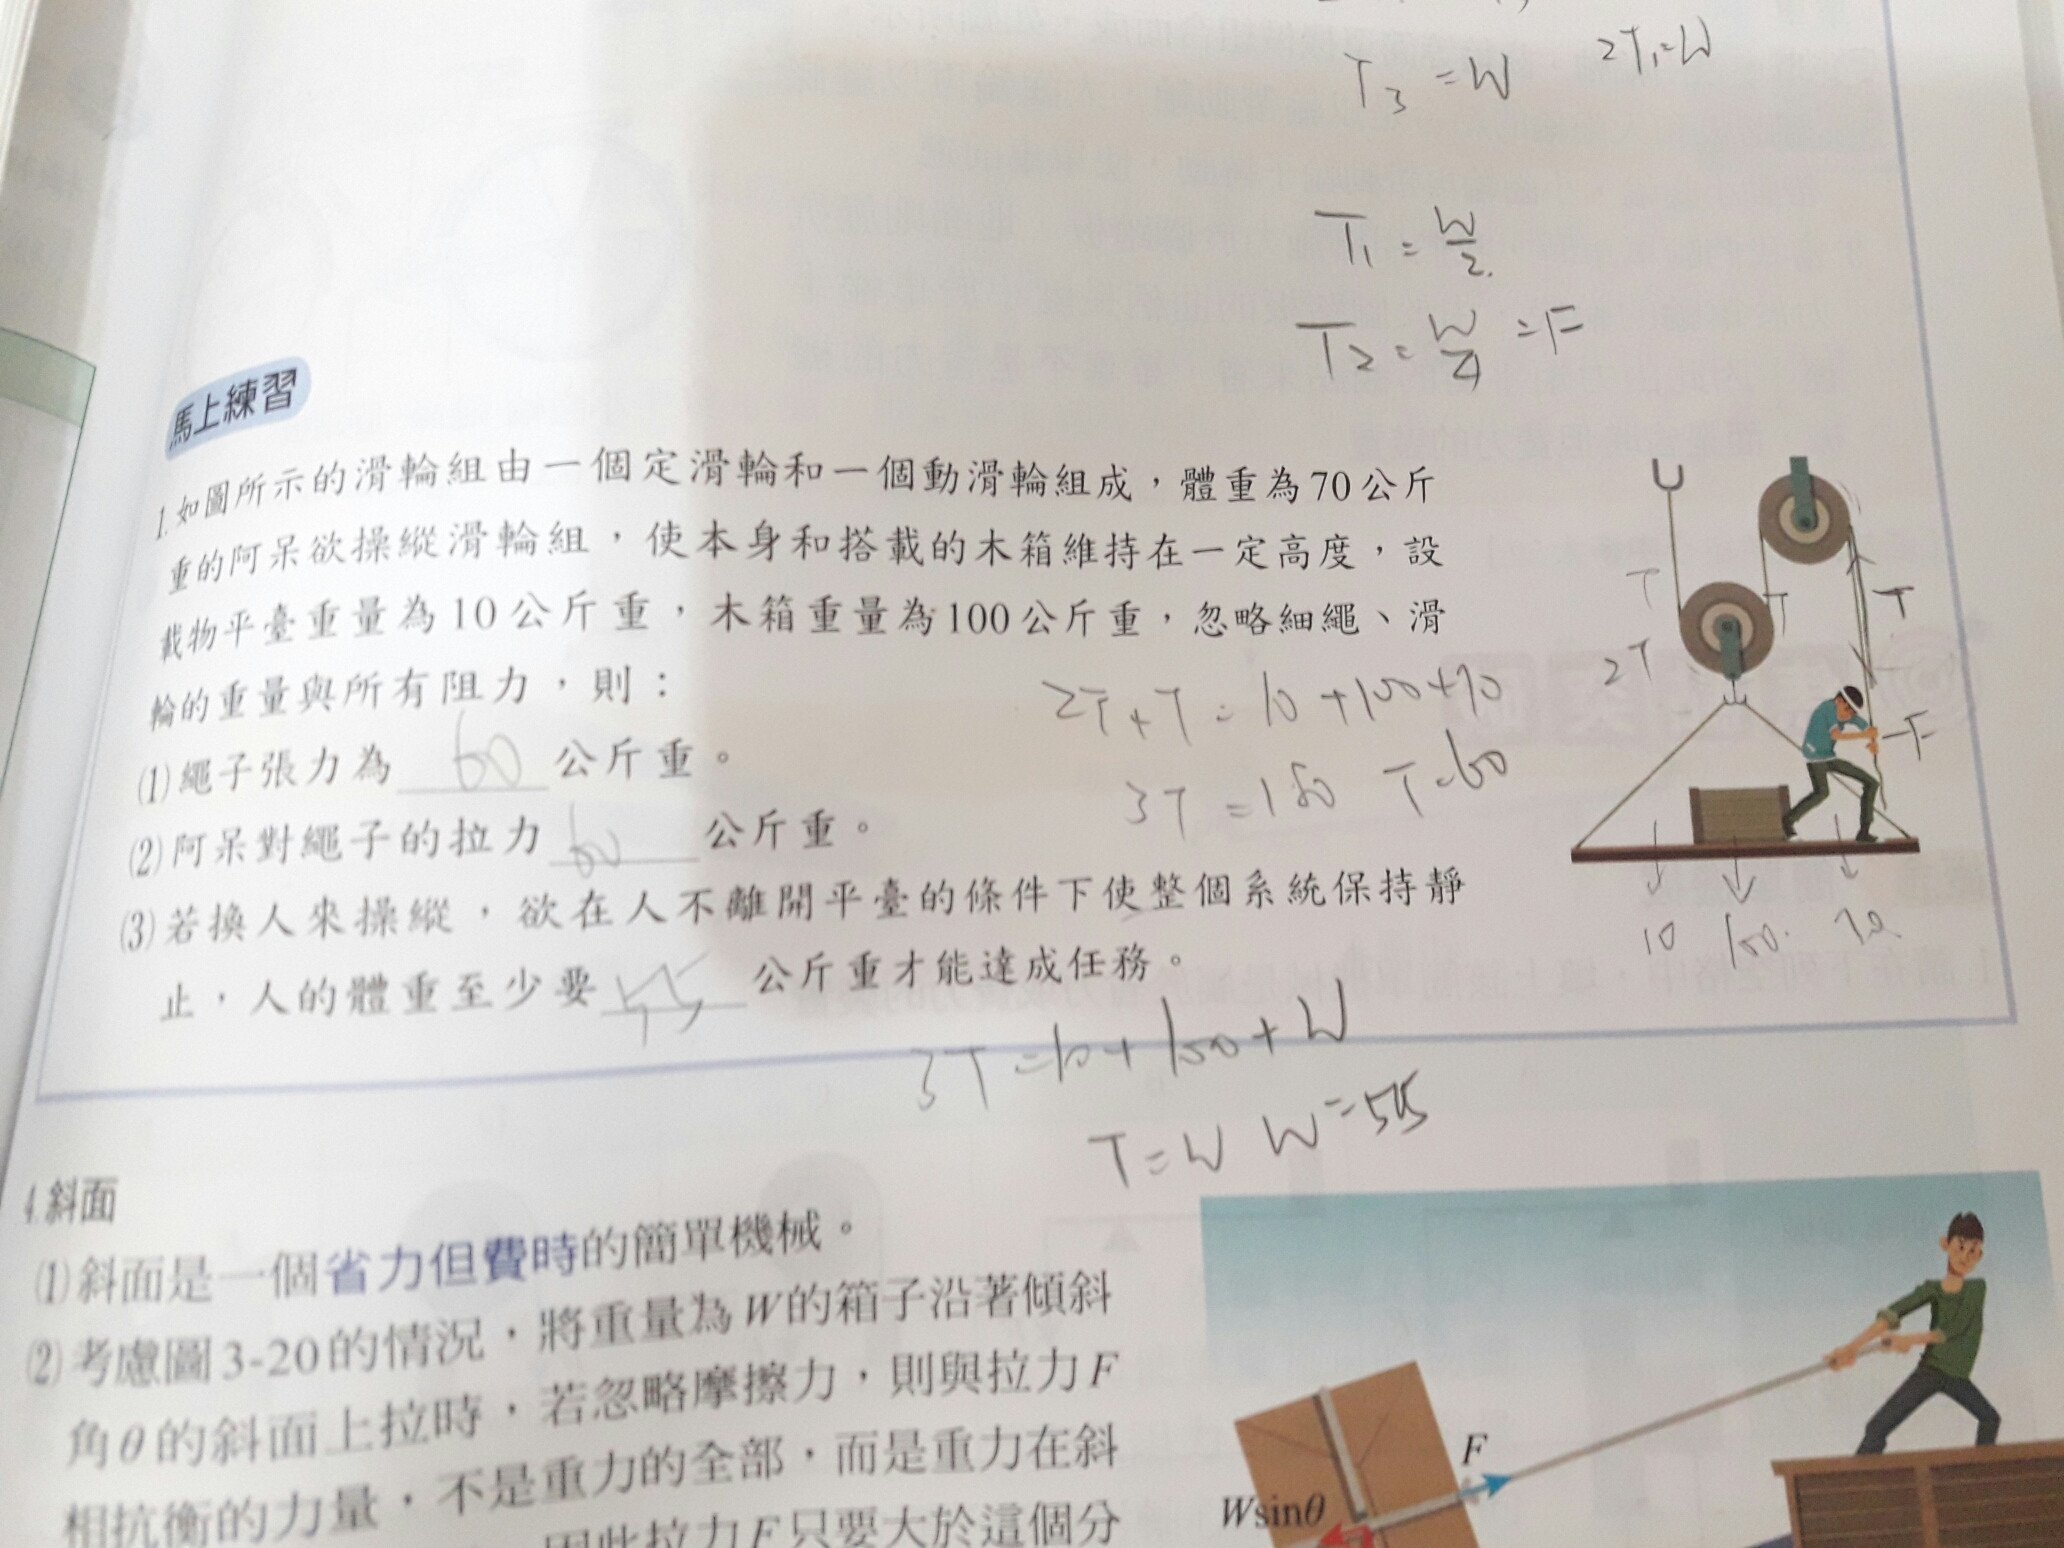 T₃ = W
2T₁=W
T₁ = W/2.
T₂ = W/4 = F
馬上練習
1.如圖所示的滑輪組由一個定滑輪和一個動滑輪組成，體重為70公斤
重的阿呆欲操縱滑輪組，使本身和搭載的木箱維持在一定高度，設
載物平臺重量為10公斤重，木箱重量為100公斤重，忽略細繩、滑
輪的重量與所有阻力，則：
(1)繩子張力為 60 公斤重。
(2)阿呆對繩子的拉力 60 公斤重。
(3)若換人來操縱，欲在人不離開平臺的條件下使整個系統保持靜
止，人的體重至少要 55 公斤重才能達成任務。
2T+T = 10+100+70
3T = 180 T=60
T
T
T
2T
F
10
100.
70
3T = 10+100+W
T=W W=55
4.斜面
(1)斜面是一個省力但費時的簡單機械。
(2)考慮圖3-20的情況，將重量為W的箱子沿著傾斜
角θ的斜面上拉時，若忽略摩擦力，則與拉力F
相抗衡的力量，不是重力的全部，而是重力在斜
因此拉力F只要大於這個分
F
Wsinθ